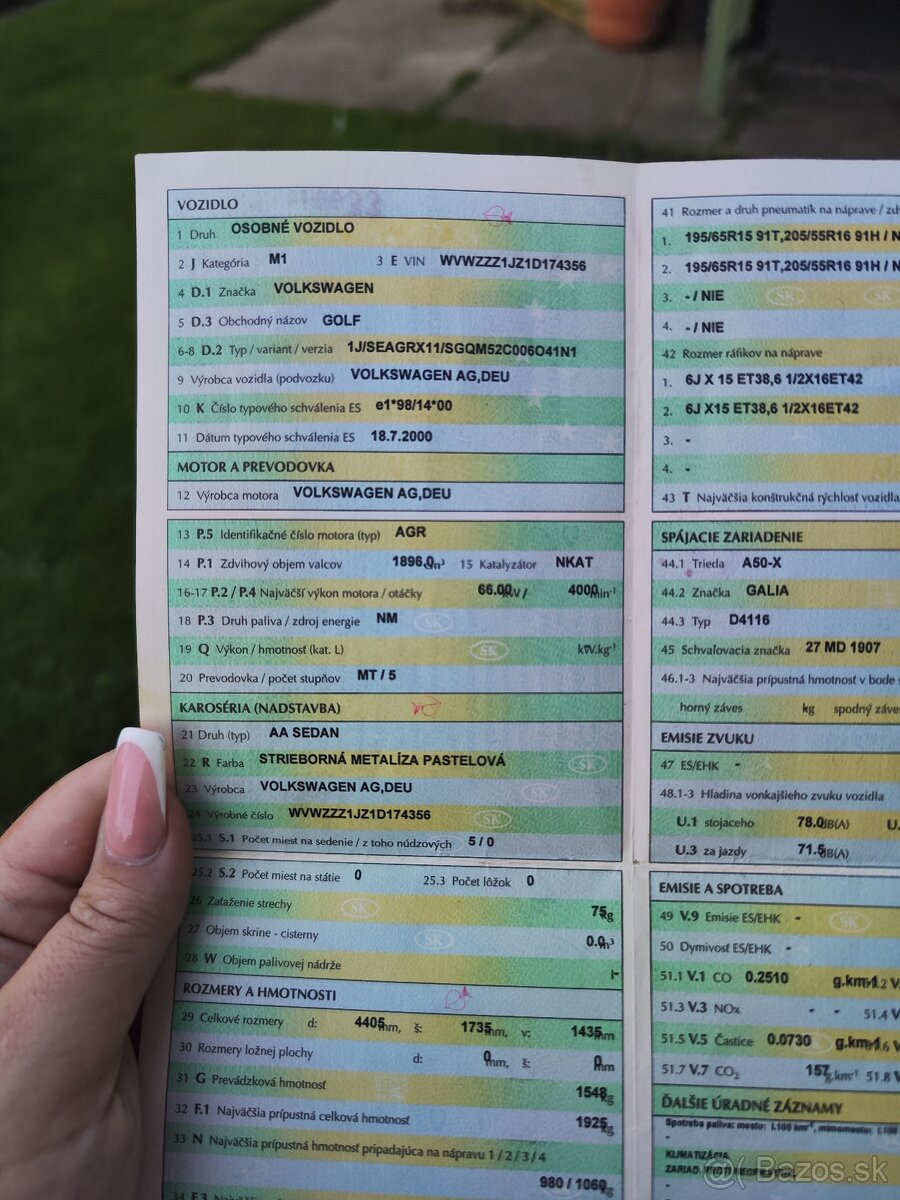 VOZIDLO
1 Druh OSOBNÉ VOZIDLO
2 J Kategória M1 3 E VIN WVWZZZ1JZ1D174356
4 D.1 Značka VOLKSWAGEN
5 D.3 Obchodný názov GOLF
6-8 D.2 Typ / variant / verzia 1J/SEAGRX11/SGQM52C006O41N1
9 Výrobca vozidla (podvozku) VOLKSWAGEN AG,DEU
10 K Číslo typového schválenia ES e1*98/14*00
11 Dátum typového schválenia ES 18.7.2000
MOTOR A PREVODOVKA
12 Výrobca motora VOLKSWAGEN AG,DEU
13 P.5 Identifikačné číslo motora (typ) AGR
14 P.1 Zdvihový objem valcov 1896.0 cm³ 15 Katalyzátor NKAT
16-17 P.2 / P.4 Najväčší výkon motora / otáčky 66.00 kW / 4000 min⁻¹
18 P.3 Druh paliva / zdroj energie NM
19 Q Výkon / hmotnosť (kat. L) kW.kg⁻¹
20 Prevodovka / počet stupňov MT / 5
KAROSÉRIA (NADSTAVBA)
21 Druh (typ) AA SEDAN
22 R Farba STRIEBORNÁ METALÍZA PASTELOVÁ
23 Výrobca VOLKSWAGEN AG,DEU
24 Výrobné číslo WVWZZZ1JZ1D174356
25.1 S.1 Počet miest na sedenie / z toho núdzových 5 / 0
25.2 S.2 Počet miest na státie 0 25.3 Počet lôžok 0
26 Zaťaženie strechy 75 kg
27 Objem skrine - cisterny 0.0 m³
28 W Objem palivovej nádrže l-
ROZMERY A HMOTNOSTI
29 Celkové rozmery d: 4405 mm, š: 1735 mm, v: 1435 mm
30 Rozmery ložnej plochy d: 0 mm, š: 0 mm
31 G Prevádzková hmotnosť 1548 kg
32 F.1 Najväčšia prípustná celková hmotnosť 1925 kg
33 N Najväčšia prípustná hmotnosť pripadajúca na nápravu 1 / 2 / 3 / 4
980 / 1060 kg
41 Rozmer a druh pneumatík na náprave /
1. 195/65R15 91T,205/55R16 91H / N
2. 195/65R15 91T,205/55R16 91H / N
3. - / NIE
4. - / NIE
42 Rozmer ráfikov na náprave
1. 6J X 15 ET38,6 1/2X16ET42
2. 6J X15 ET38,6 1/2X16ET42
3. -
4. -
43 T Najväčšia konštrukčná rýchlosť vozidla
SPÁJACIE ZARIADENIE
44.1 Trieda A50-X
44.2 Značka GALIA
44.3 Typ D4116
45 Schvaľovacia značka 27 MD 1907
46.1-3 Najväčšia prípustná hmotnosť v bode
horný záves kg spodný záves
EMISIE ZVUKU
47 ES/EHK -
48.1-3 Hladina vonkajšieho zvuku vozidla
U.1 stojaceho 78.0 dB(A) U.
U.3 za jazdy 71.5 dB(A)
EMISIE A SPOTREBA
49 V.9 Emisie ES/EHK -
50 Dymivosť ES/EHK -
51.1 V.1 CO 0.2510 g.km-1 51.2 V.
51.3 V.3 NOx - - 51.4 V
51.5 V.5 Častice 0.0730 g.km-1 51.6 V
51.7 V.7 CO₂ 157 g.km⁻¹ 51.8 V
ĎALŠIE ÚRADNÉ ZÁZNAMY
Spotreba paliva: mesto: l.100 km⁻¹, mimomesto: l.100
-
KLIMATIZÁCIA
Bazos.sk